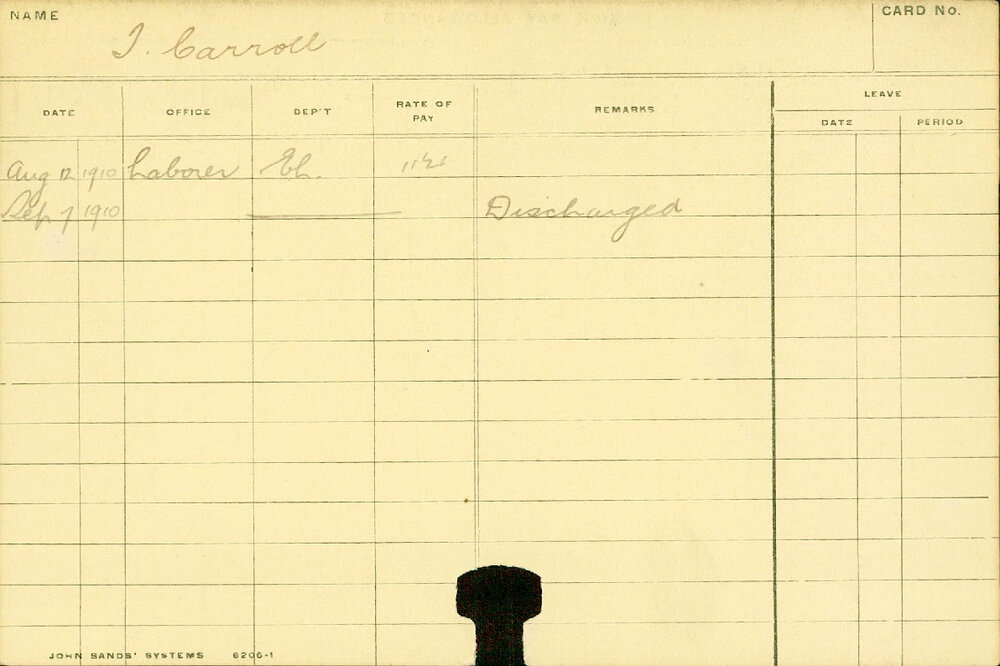 NAME
CARD No.
J. Carroll
LEAVE
DATE OFFICE DEP'T RATE OF PAY REMARKS DATE PERIOD
Aug 12 1910 Laborer Eh.
Sep 7 1910 Discharged
JOHN SANDS' SYSTEMS 6206-1